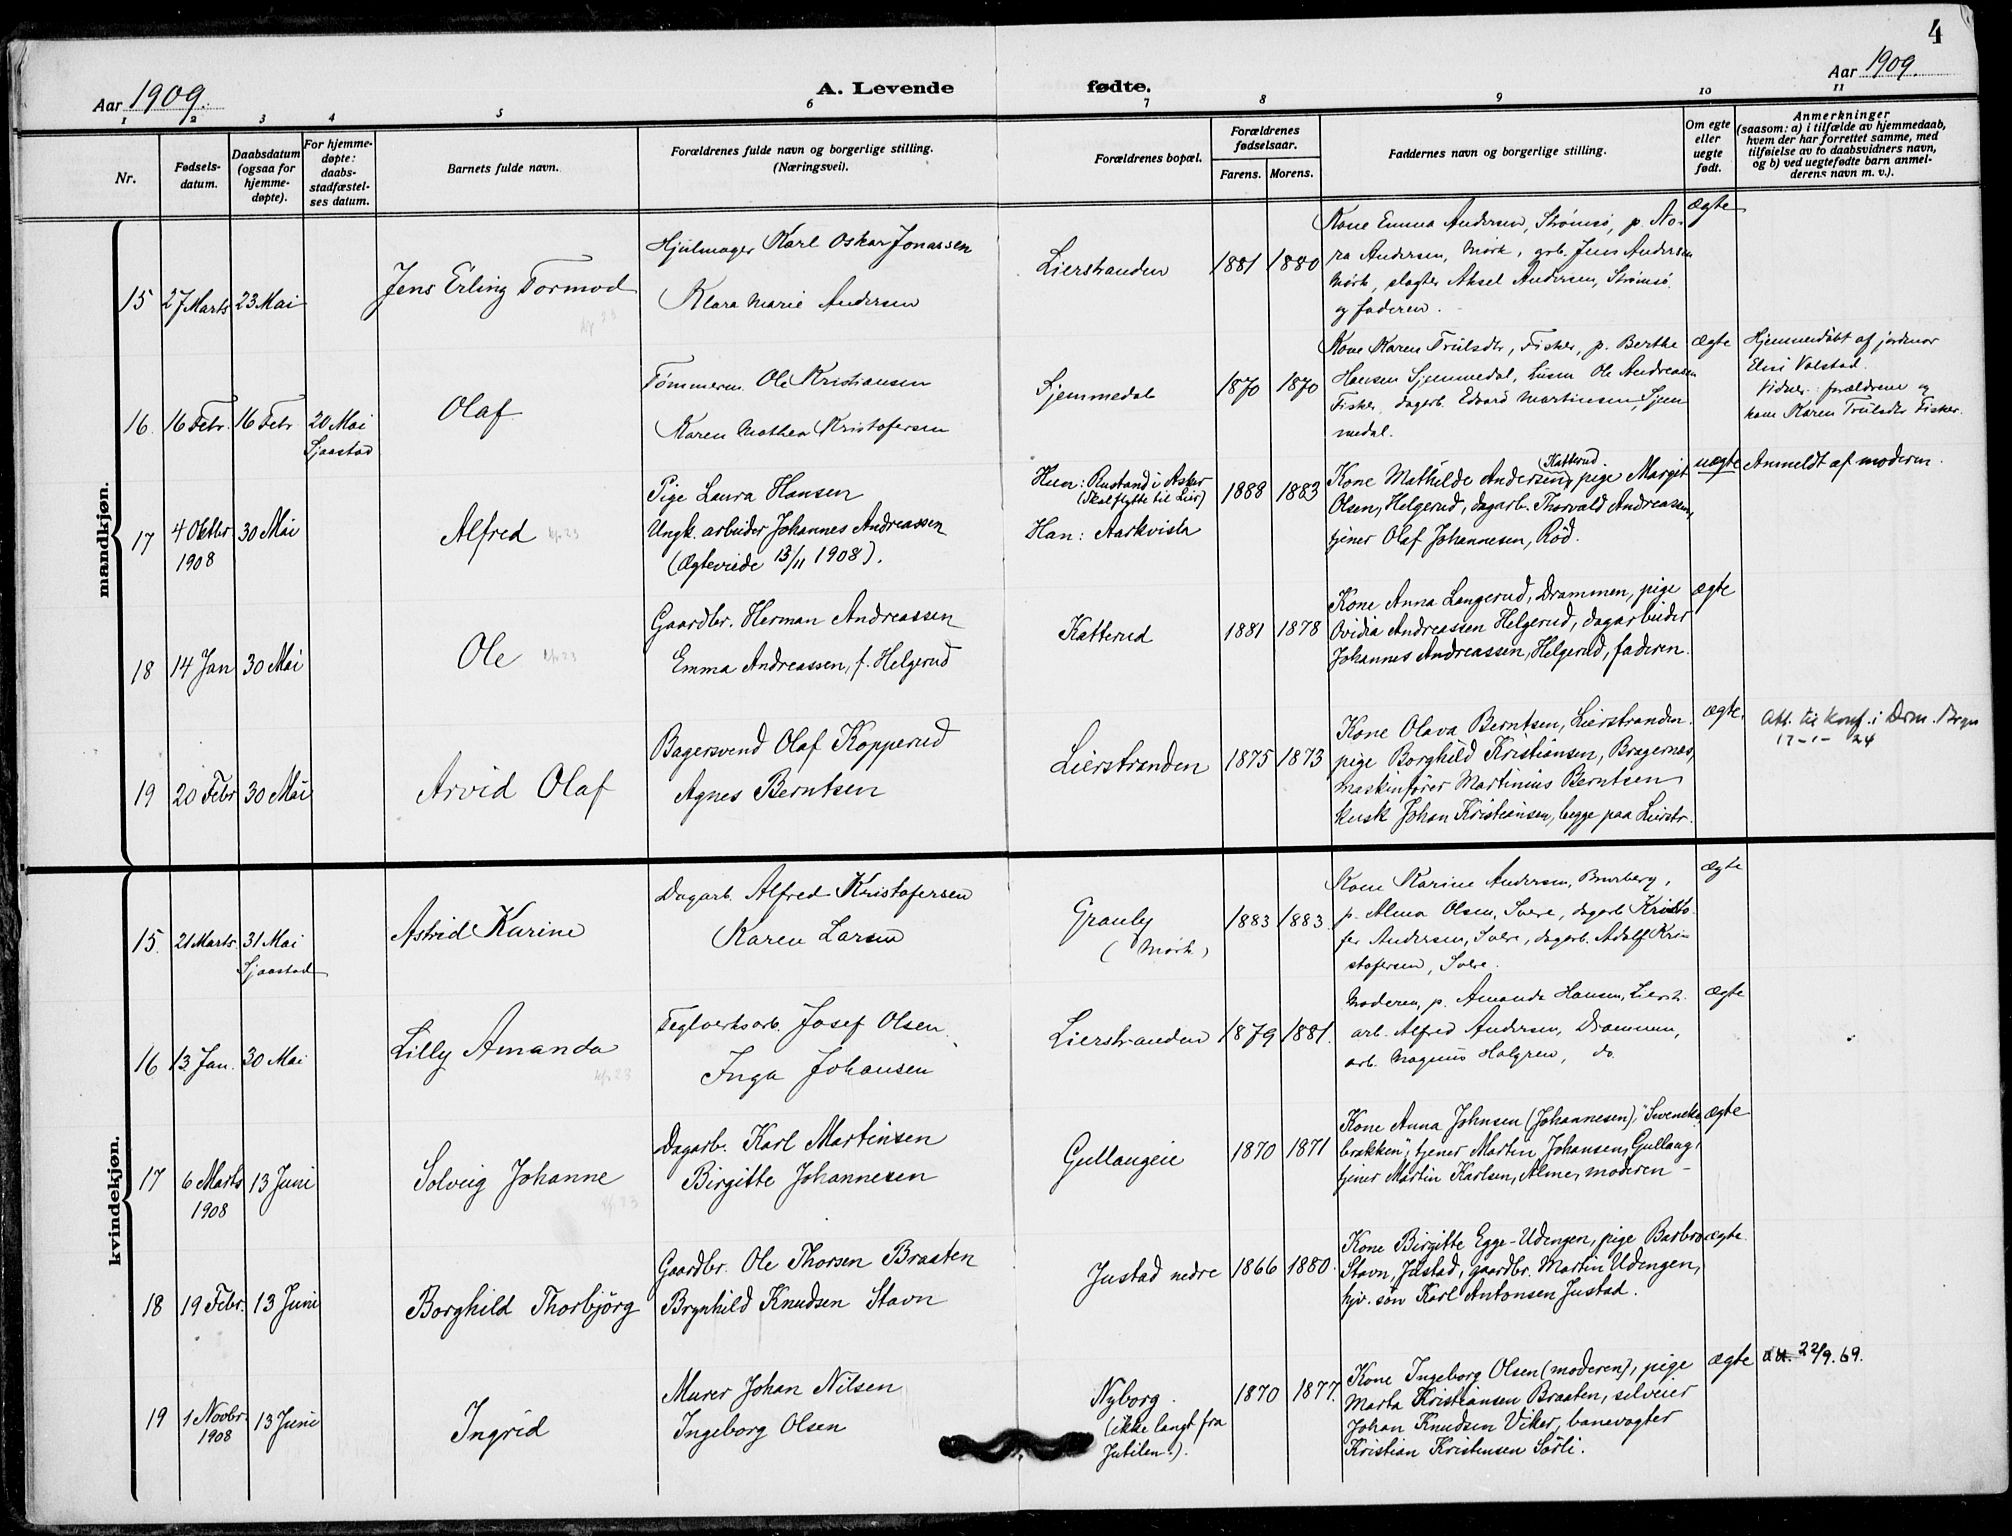 4
Aar 1909.
A. Levende fødte.
Aar 1909.
1 2 3 4 5 6 7 8 9 10 11
Nr.
Fødsels-
datum.
Daabsdatum
(ogsaa for
hjemme-
døpte).
For hjemme-
døpte:
daabs-
stadfæstel-
ses datum.
Barnets fulde navn.
Forældrenes fulde navn og borgerlige stilling.
(Næringsvei).
Forældrenes bopæl.
Forældrenes
fødselsaar.
Farens. Morens.
Faddernes navn og borgerlige stilling.
Om egte
eller
uegte
født.
Anmerkninger
(saasom: a) i tilfælde av hjemmedaab,
hvem der har forrettet samme, med
tilføielse av to daabsvidners navn,
og b) ved uegtefødte barn anmel-
derens navn m. v.).
mandkjøn.
15 27 Marts 23 Mai
Jens Erling Tormod
Hjulmager Karl Oskar Jonassen
Klara Marie Andersen
Lierstranden
1881 1880
Kone Emma Andersen, Strømsø, p. No-
ra Andersen, Mørk, grb. Jens Andersen
Mørk, slagter Aksel Andersen, Strømsø
og faderen.
ægte
16. 16 Febr. 16 Febr. 20 Mai
Sjaastad
Olaf
Tømmerm. Ole Kristiansen
Karen Mathea Kristofersen
Sjemmedal
1870 1870
Kone Karen Trulsdr, Fisker, p. Berthe
Hansen Sjemmedal, Ole Andreasen
Fisker, dagarb. Edvard Martinsen, Sjem
medal.
ægte
Hjemmedøbt af jordmor
Elni Valstad.
Vidner: forældrene og
kone Karen Trulsdr Fisker.
17 4 Oktbr 30 Mai
1908
Alfred
Pige Laura Hansen
Ungk. arbeider Johannes Andreassen
(Ægteviede 13/11 1908).
Hun: Rustand i Asker
(Skal flytte til Lier)
Han: Aarkvisla
1888 1883
Katterud
Kone Mathilde Andersen, pige Margit
Olsen, Helgerud, dagarb. Thorvald Andreassen,
tjener Olaf Johannesen, Rød.
uægte
Anmeldt af moderen.
18 14 Jan 30 Mai
Ole
Gaardbr. Herman Andreassen
Emma Andreassen, f. Helgerud
Katterud
1881 1878
Kone Anna Langerud, Drammen, pige
Ovidia Andreassen Helgerud, dagarbeider
Johannes Andreassen, Helgerud, faderen.
ægte
19 20 Febr 30 Mai
Arvid Olaf
Bagersvend Olaf Kopperud
Agnes Berntsen
Lierstranden
1875 1873
Kone Olava Berntsen, Lierstranden.
pige Borghild Kristiansen, Bragernæs,
maskinfører Martinius Berntsen
kusk Johan Kristiansen, begge paa Lierstr.
ægte.
Att. til konf. i Drm. Brgn
17-1- 24
kvindekjøn.
15. 21 Marts 31 Mai
Sjaastad
Astrid Karine
Dagarb. Alfred Kristofersen
Karen Larsen
Granly
(Mørk)
1883 1883.
Kone Karine Andersen, Brurberg,
p. Alma Olsen, Solre, dagarb. Kristo-
fer Andersen, Solre, dagarb. Adolf Kri-
stofersen, Solre.
ægte
16 13 Jan. 30 Mai
Lilly Amanda
Teglverksarb. Josef Olsen
Inga Johansen
Lierstranden
1879 1881.
Moderen, p. Amanda Hansen, Lierst.
arb. Alfred Andersen, Drammen,
arb. Magnus Holgren, do.
ægte
17 6 Marts 13 Juni
1908
Solveig Johanne
Dagarb. Karl Martinsen
Birgitte Johannesen
Gullaugeie
1870 1871
Kone Anna Johnsen (Johannesen), "Svenske
brækken", tjener Martin Johansen, Gullaug,
tjener Martin Karlsen, Alme, moderen -
ægte
18 19 Febr. 13 Juni
Borghild Thorbjørg
Gaardbr. Ole Thorsen Braaten
Brynhild Knudsen Stavn
Justad nedre
1866 1880.
Kone Birgitte Egge-Udengen, pige Barbro
Stavn, Justad, gaardbr. Martin Udengen,
hjv. søn Karl Antonsen Justad.
ægte.
19 1 Novbr. 13 Juni
1908
Ingrid
Murer Johan Nilsen
Ingeborg Olsen
Nyborg.
(ikke langt fra
Jutulen.).
1870 1877.
Kone Ingeborg Olsen (moderen), pige
Marta Kristiansen Braaten, selveier
Johan Knudsen Viker, banevogter
Kristian Kristensen Sørli.
ægte
att. 22/9.69.